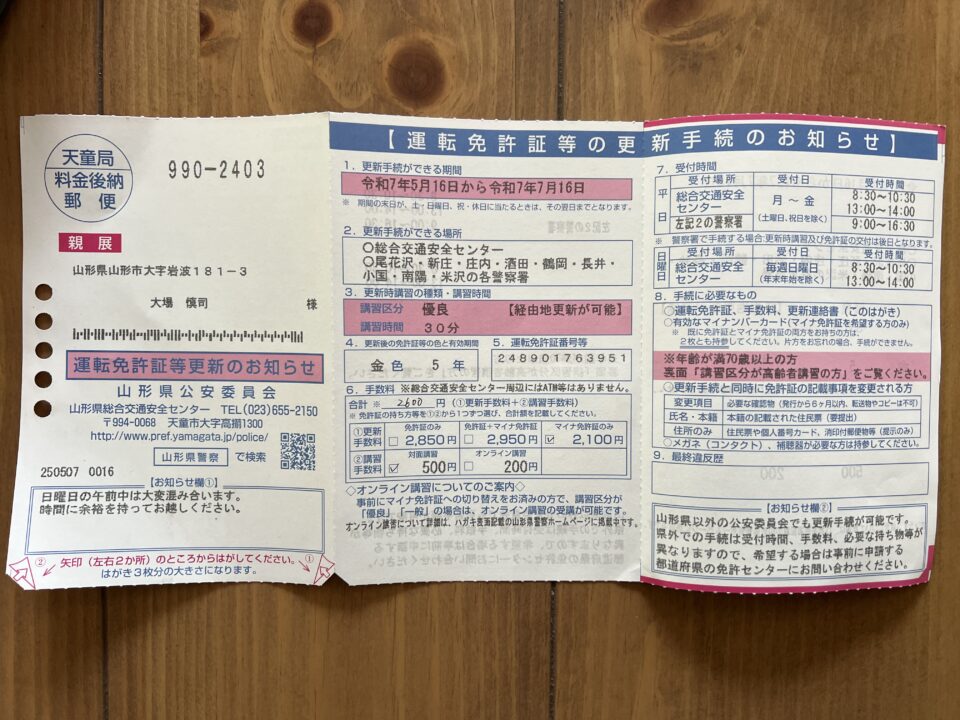 天童局
料金後納
郵便
990-2403
親展
山形県山形市大字岩波181-3
大場 慎司 様
運転免許証等更新のお知らせ
山形県公安委員会
山形県総合交通安全センター TEL(023)655-2150
〒994-0068 天童市大字高擶1300
http://www.pref.yamagata.jp/police/
山形県警察 で検索
250507 0016
【お知らせ欄①】
日曜日の午前中は大変混み合います。
時間に余裕を持ってお越しください。
② 矢印(左右2か所)のところからはがしてください。 ①
はがき3枚分の大きさになります。
【運転免許証等の更新手続のお知らせ】
1.更新手続ができる期間
令和7年5月16日から令和7年7月16日
※ 期間の末日が、土・日曜日、祝・休日に当たるときは、その翌日までとなります。
2.更新手続ができる場所
○総合交通安全センター
○尾花沢・新庄・庄内・酒田・鶴岡・長井・
小国・南陽・米沢の各警察署
3.更新時講習の種類・講習時間
講習区分 優良 【経由地更新が可能】
講習時間 30分
4.更新後の免許証等の色と有効期間
金色 5年
5.運転免許証番号等
248901763951
6.手数料 ※総合交通安全センター周辺にはATM等はありません。
合計 ※ 2600 円(①更新手数料+②講習手数料)
※ 免許証の持ち方等を①②から1つずつ選び、合計額を記載してください。
①更新手数料 免許証のみ □2,850円 免許証+マイナ免許証 □2,950円 マイナ免許証のみ ☑2,100円
②講習手数料 対面講習 ☑500円 オンライン講習 □200円
◇オンライン講習についてのご案内◇
事前にマイナ免許証への切り替えをお済みの方で、講習区分が
「優良」「一般」の場合は、オンライン講習の受講が可能です。
オンライン講習について詳細は、ハガキ表面記載の山形県警察ホームページに掲載中です。
7.受付時間
平日
受付場所 受付日 受付時間
総合交通安全センター 月～金 (土曜日、祝日を除く) 8:30～10:30
13:00～14:00
左記2の警察署 9:00～16:30
※ 警察署で手続する場合:更新時講習及び免許証の交付は後日となります。
日曜日
受付場所 受付日 受付時間
総合交通安全センター 毎週日曜日 (年末年始を除く) 8:30～10:30
13:00～14:00
8.手続に必要なもの
○運転免許証、手数料、更新連絡書(このはがき)
○有効なマイナンバーカード(マイナ免許証を希望する方のみ)
※ 既に免許証とマイナ免許証の両方をお持ちの方は、
2枚とも持参してください。片方をお忘れの場合、手続ができません。
※年齢が満70歳以上の方
裏面「講習区分が高齢者講習の方」をご覧ください。
○更新手続と同時に免許証の記載事項を変更される方
変更項目 必要な確認物(発行から6ヶ月以内、転送物やコピーは不可)
氏名・本籍 本籍の記載された住民票(要提出)
住所のみ 住民票や個人番号カード、消印付郵便物等(提示のみ)
○メガネ(コンタクト)、補聴器が必要な方は持参してください。
9.最終違反歴
【お知らせ欄②】
山形県以外の公安委員会でも更新手続が可能です。
県外での手続は受付時間、手数料、必要な持ち物等が
異なりますので、希望する場合は事前に申請する
都道府県の免許センターにお問い合わせください。